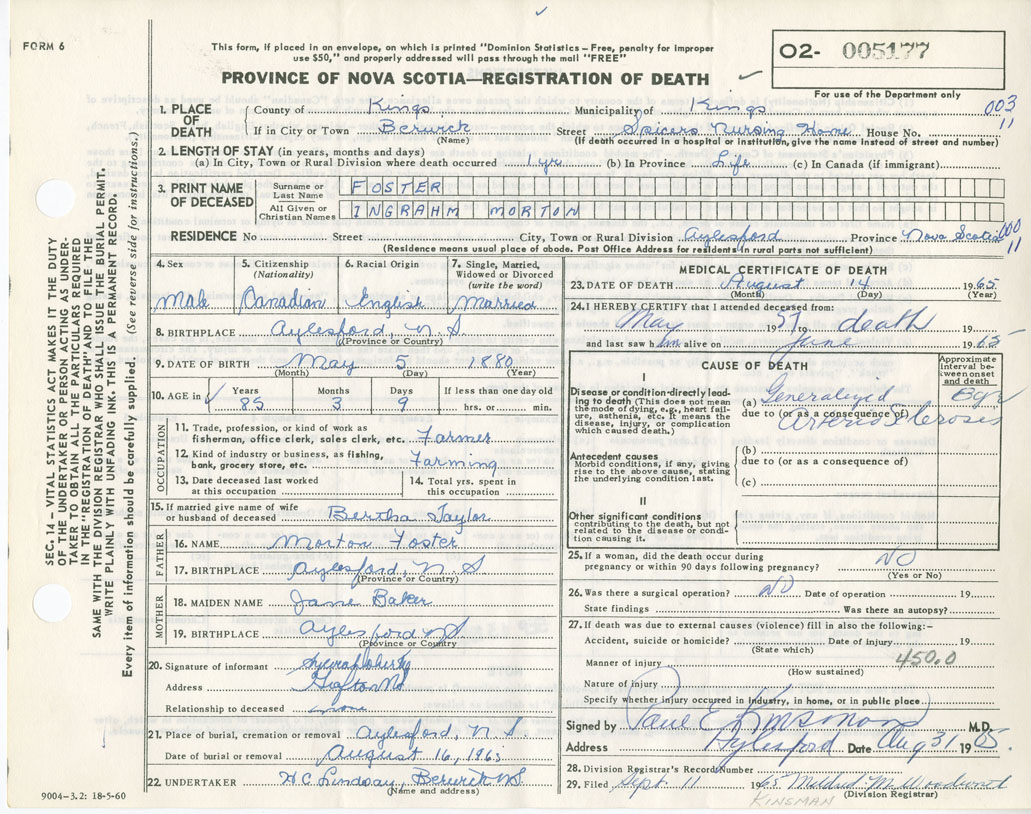 FORM 6
This form, if placed in an envelope, on which is printed "Dominion Statistics – Free, penalty for improper
use $50," and properly addressed will pass through the mail "FREE"
PROVINCE OF NOVA SCOTIA—REGISTRATION OF DEATH
02- 005177
For use of the Department only
003
11
1. PLACE OF DEATH County of Kings Municipality of Kings
If in City or Town Berwick Street Spicers Nursing Home House No.
(Name) (If death occurred in a hospital or institution, give the name instead of street and number)
2. LENGTH OF STAY (in years, months and days)
(a) In City, Town or Rural Division where death occurred 1 yr (b) In Province Life (c) In Canada (if immigrant)
3. PRINT NAME OF DECEASED
Surname or Last Name FOSTER
All Given or Christian Names INGRAHM MORTON
RESIDENCE No Street City, Town or Rural Division Aylesford Province Nova Scotia 000
11
(Residence means usual place of abode. Post Office Address for residents in rural parts not sufficient)
4. Sex
Male
5. Citizenship
(Nationality)
Canadian
6. Racial Origin
English
7. Single, Married,
Widowed or Divorced
(write the word)
Married
8. BIRTHPLACE Aylesford, N. S
(Province or Country)
9. DATE OF BIRTH May 5 1880
(Month) (Day) (Year)
10. AGE in Years Months Days If less than one day old
85 3 9 hrs. or min.
OCCUPATION
11. Trade, profession, or kind of work as
fisherman, office clerk, sales clerk, etc. Farmer
12. Kind of industry or business, as fishing,
bank, grocery store, etc. Farming
13. Date deceased last worked
at this occupation
14. Total yrs. spent in
this occupation
15. If married give name of wife
or husband of deceased Bertha Taylor
FATHER
16. NAME Morton Foster
17. BIRTHPLACE Aylesford, N S
(Province or Country)
MOTHER
18. MAIDEN NAME Jane Baker
19. BIRTHPLACE Aylesford NS
(Province or Country)
20. Signature of informant
Address Grafton NS
Relationship to deceased none
21. Place of burial, cremation or removal Aylesford, N S.
Date of burial or removal August 16, 1965
22. UNDERTAKER H C Lindsay, Berwick NS
(Name and address)
MEDICAL CERTIFICATE OF DEATH
23. DATE OF DEATH August 14 1965
(Month) (Day) (Year)
24. I HEREBY CERTIFY that I attended deceased from:
May 1957 to death 19
and last saw him alive on June 1965
CAUSE OF DEATH
Approximate
interval be-
tween onset
and death
I
Disease or condition directly lead-
ing to death (This does not mean
the mode of dying, e.g., heart fail-
ure, asthenia, etc. It means the
disease, injury, or complication
which caused death.)
(a) Generalized
due to (or as a consequence of)
Arterio Sclerosis
Antecedent causes
Morbid conditions, if any, giving
rise to the above cause, stating
the underlying condition last.
(b)
due to (or as a consequence of)
(c)
II
Other significant conditions
contributing to the death, but not
related to the disease or condi-
tion causing it.
25. If a woman, did the death occur during
pregnancy or within 90 days following pregnancy? NO
(Yes or No)
26. Was there a surgical operation? NO Date of operation 19
State findings Was there an autopsy?
27. If death was due to external causes (violence) fill in also the following:–
Accident, suicide or homicide? Date of injury 19
(State which)
Manner of injury 450.0
(How sustained)
Nature of injury
Specify whether injury occurred in industry, in home, or in public place.
Signed by Paul E Kinsman M.D.
Address Aylesford Date Aug 31 1965.
28. Division Registrar's Record Number
29. Filed Sept 11 1965 Mildred M. Woodword
(Division Registrar)
KINSMAN
SEC. 14 – VITAL STATISTICS ACT MAKES IT THE DUTY
OF THE UNDERTAKER OR PERSON ACTING AS UNDER-
TAKER TO OBTAIN ALL THE PARTICULARS REQUIRED
IN THE "REGISTRATION OF DEATH" AND TO FILE THE
SAME WITH THE DIVISION REGISTRAR WHO SHALL ISSUE THE BURIAL PERMIT.
WRITE PLAINLY WITH UNFADING INK. THIS IS A PERMANENT RECORD.
Every item of information should be carefully supplied. (See reverse side for instructions.)
9004-3.2: 18-5-60